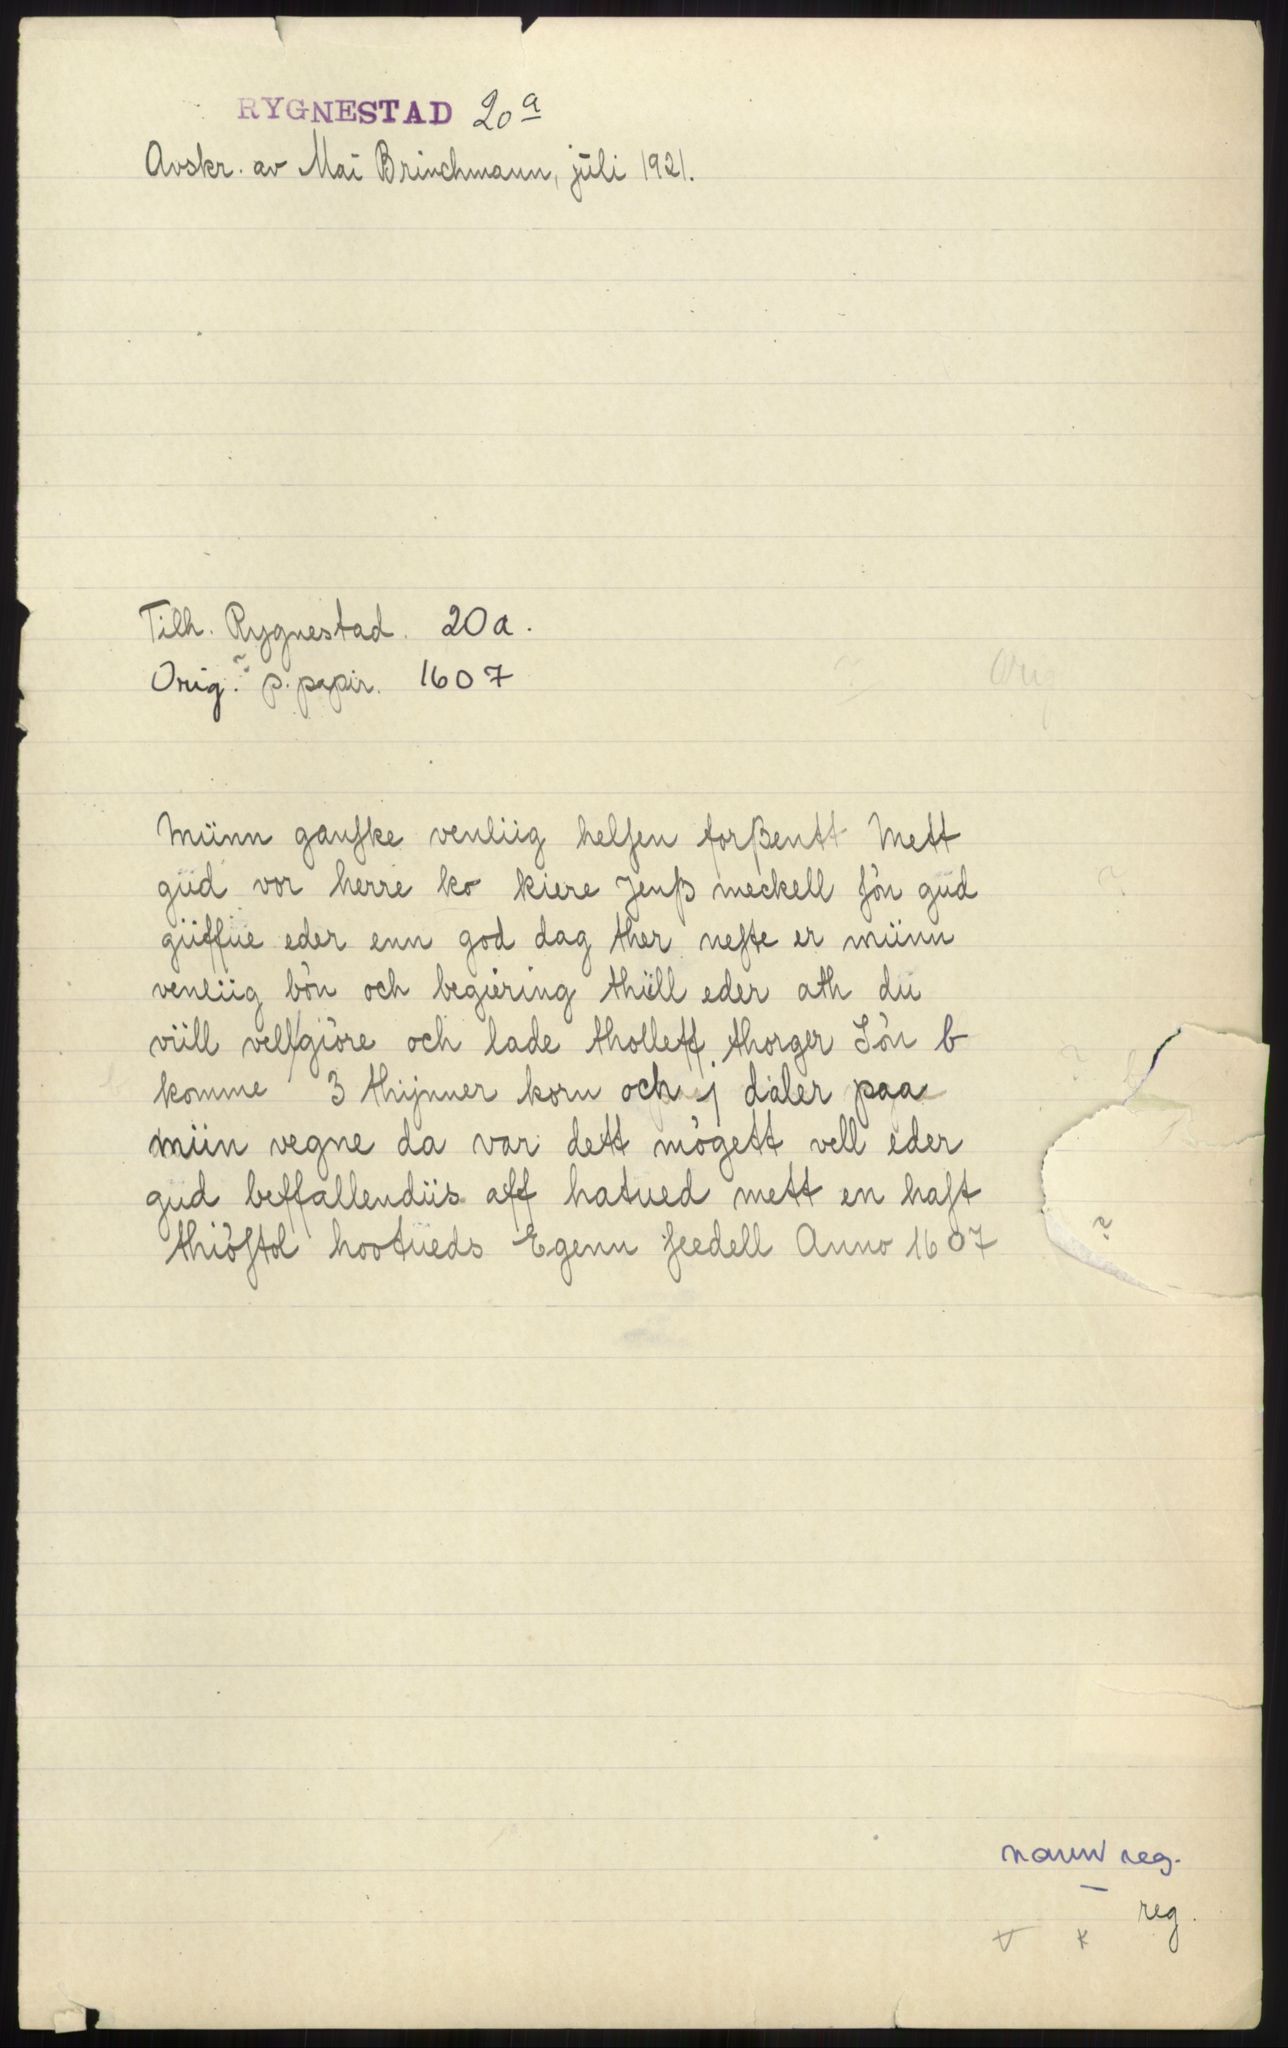 RYGNESTAD 20a
Avskr. av Mai Brinchmann, juli 1921.
Tilh. Rygnestad. 20a.
Orig.? p. papir. 1607
? Orig
Münn ganſke venliig helſen forßentt Mett
güd vor herre ko kiere Jenß meckell ſön güd ?
güffüe eder enn god dag ther neſte er münn
venliig bön och begiering thüll eder ath dü
vüll vell giöre och lade tholleff thorger Sön b ?
komme 3 thijnner korn och j daler paa
miin vegne da var dett mögett vell eder
gud beffallendiis aff hatued mett en haſt ?
thiöſtol hootüeds Egenn ſeedell Anno 1607
navn reg.
reg.